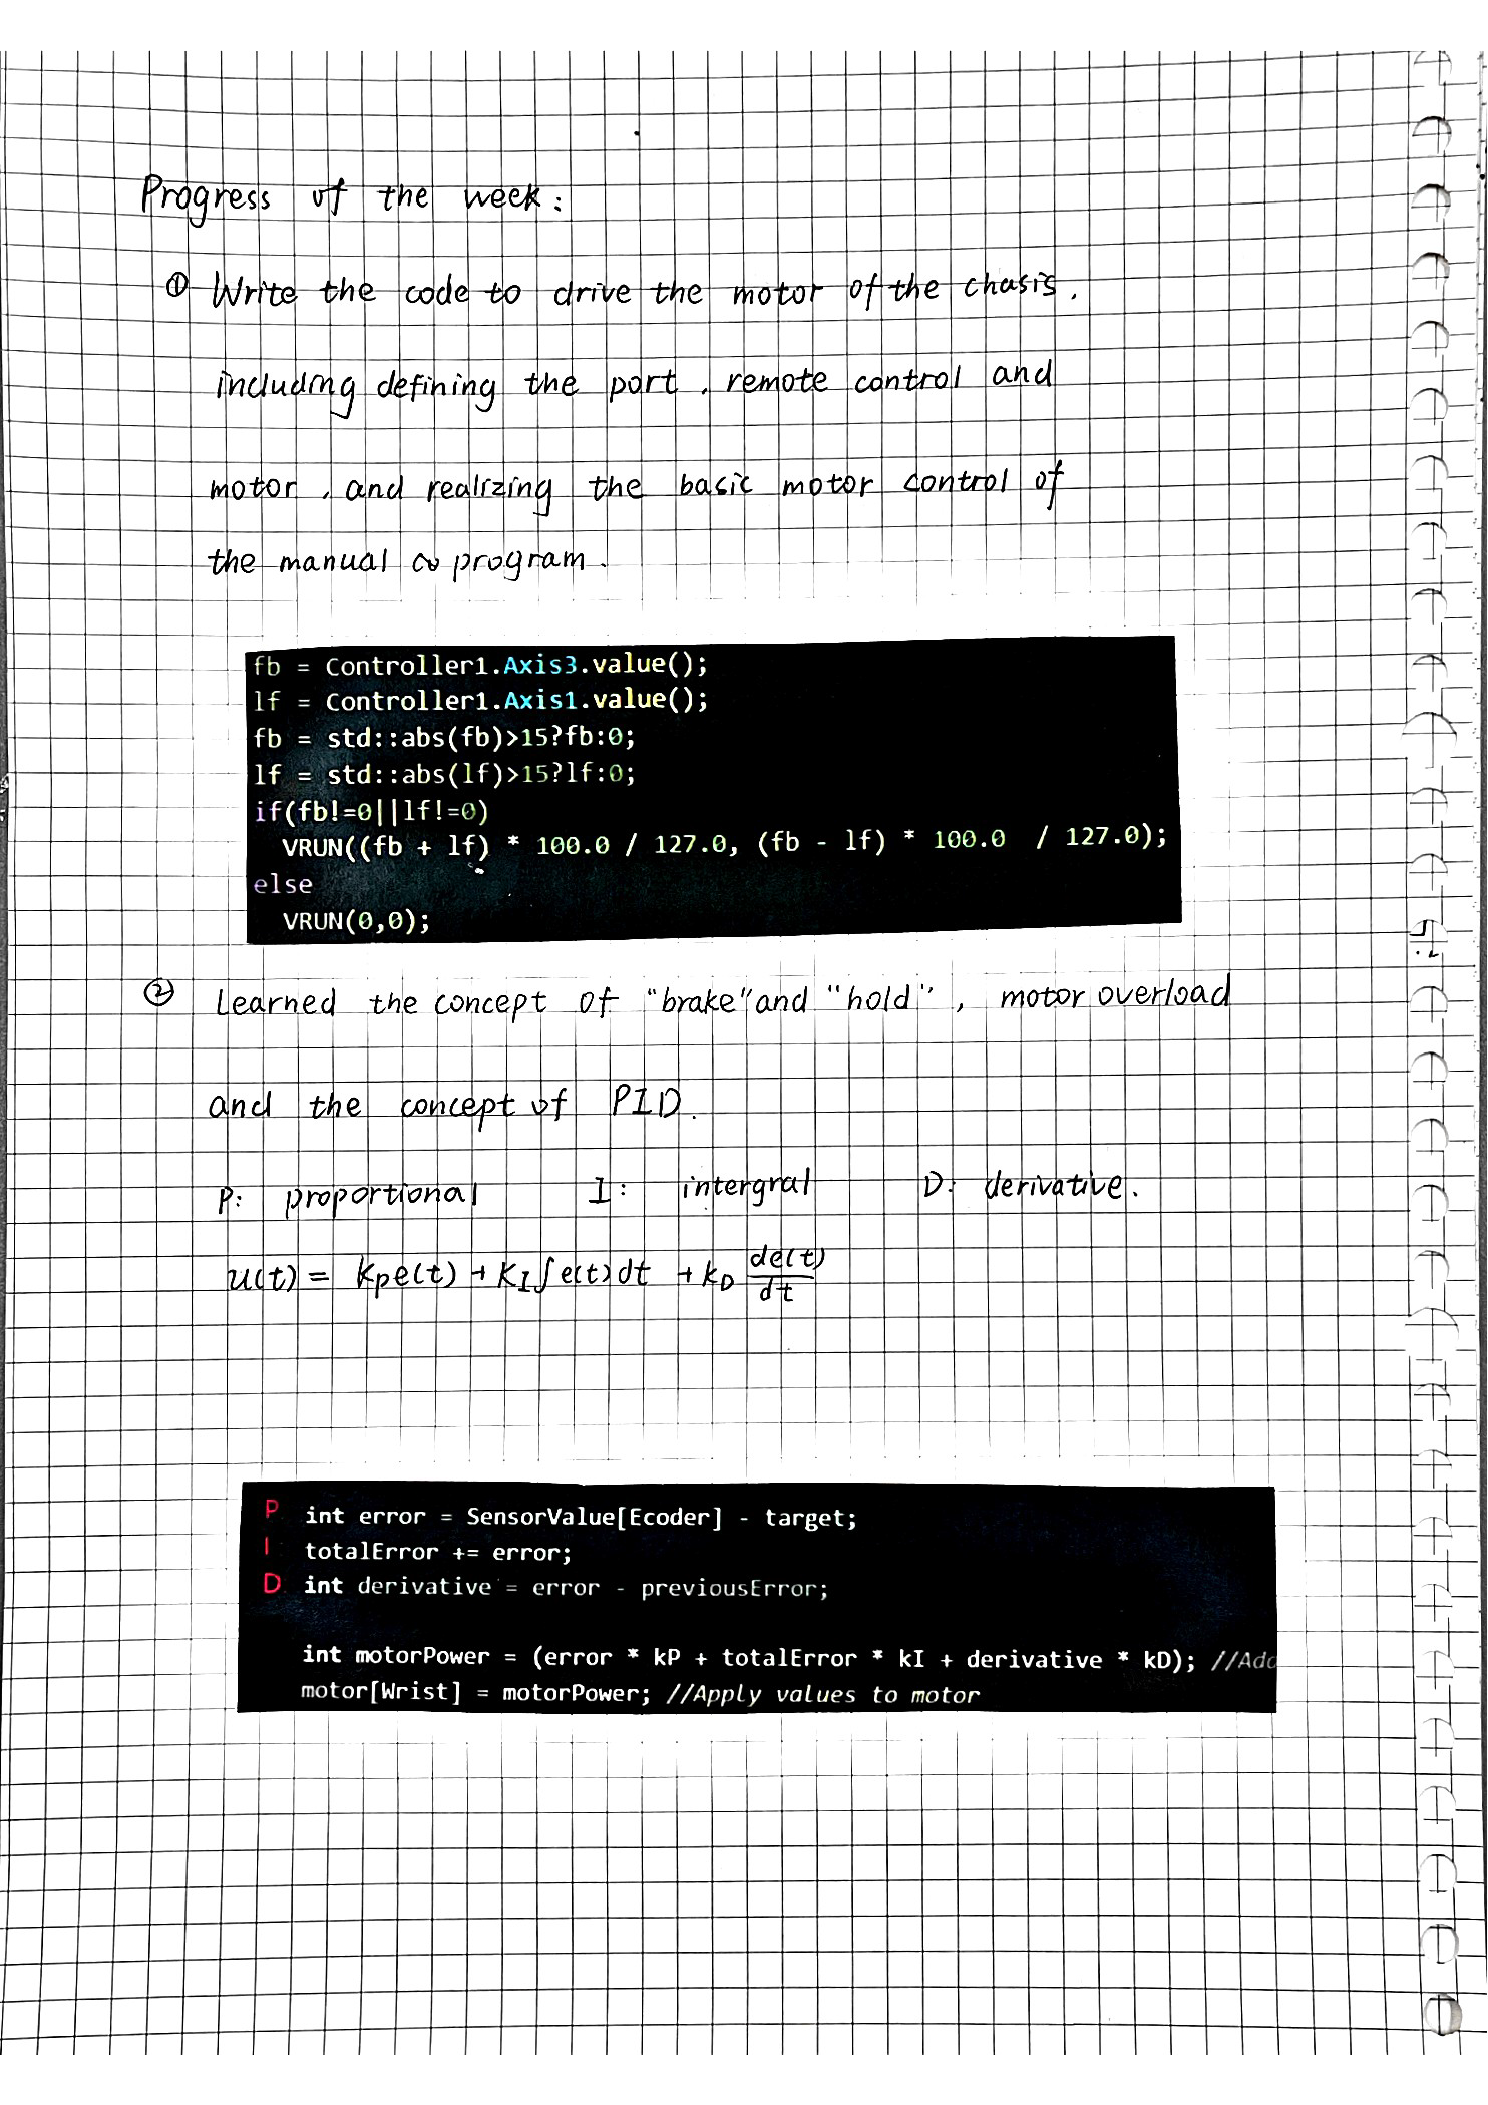 Progress of the week:
① Write the code to drive the motor of the chasis.
including defining the port, remote control and
motor, and realizing the basic motor control of
the manual program.
fb = Controller1.Axis3.value();
lf = Controller1.Axis1.value();
fb = std::abs(fb)>15?fb:0;
lf = std::abs(lf)>15?lf:0;
if(fb!=0||lf!=0)
VRUN((fb + lf) * 100.0 / 127.0, (fb - lf) * 100.0 / 127.0);
else
VRUN(0,0);
② Learned the concept of "brake" and "hold", motor overload
and the concept of PID.
P: proportional I: intergral D: derivative.
u(t) = kpe(t) + KI∫e(t)dt + kD de(t)/dt
P int error = SensorValue[Ecoder] - target;
I totalError += error;
D int derivative = error - previousError;
int motorPower = (error * kP + totalError * kI + derivative * kD); //Add
motor[Wrist] = motorPower; //Apply values to motor